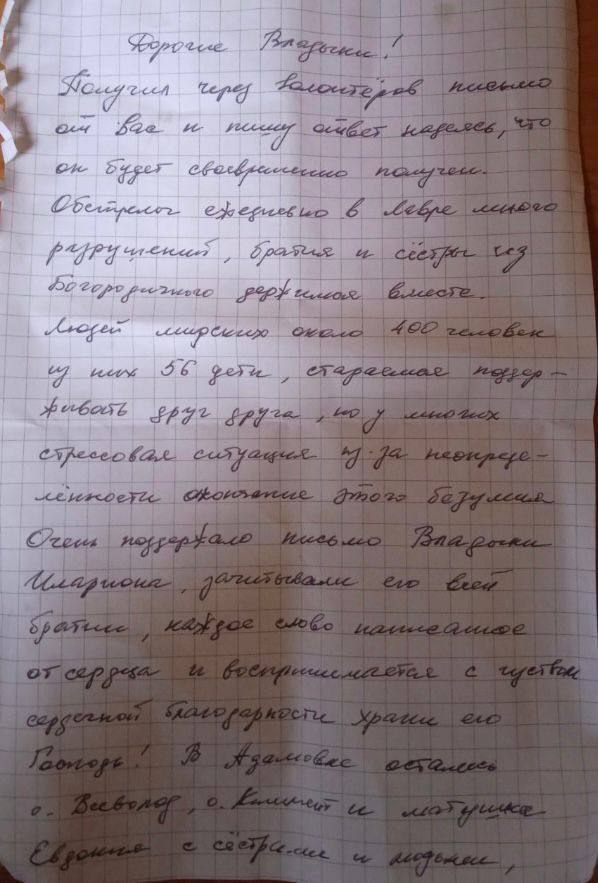 Дорогие Владыки!
Получил через волонтёров письмо
от Вас и пишу ответ надеясь, что
он будет своевременно получен.
Обстрелы ежедневно в Лавре много
разрушений, братия и сёстры из
Богородичного держимся вместе.
Людей мирских около 400 человек
из них 56 дети, стараемся поддер-
живать друг друга, но у многих
стрессовая ситуация из-за неопреде-
лённости окончание этого безумия
Очень поддержало письмо Владыки
Илариона, зачитывали его всей
братии, каждое слово написанное
от сердца и воспринимается с чуством
сердечной благодарности храни его
Господь! В Адамовке остались
о. Всеволод, о. Климент и матушка
Евдокия с сёстрами и людьми,